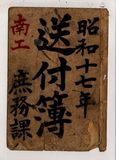 昭和十七年
送付簿
南工
庶務課